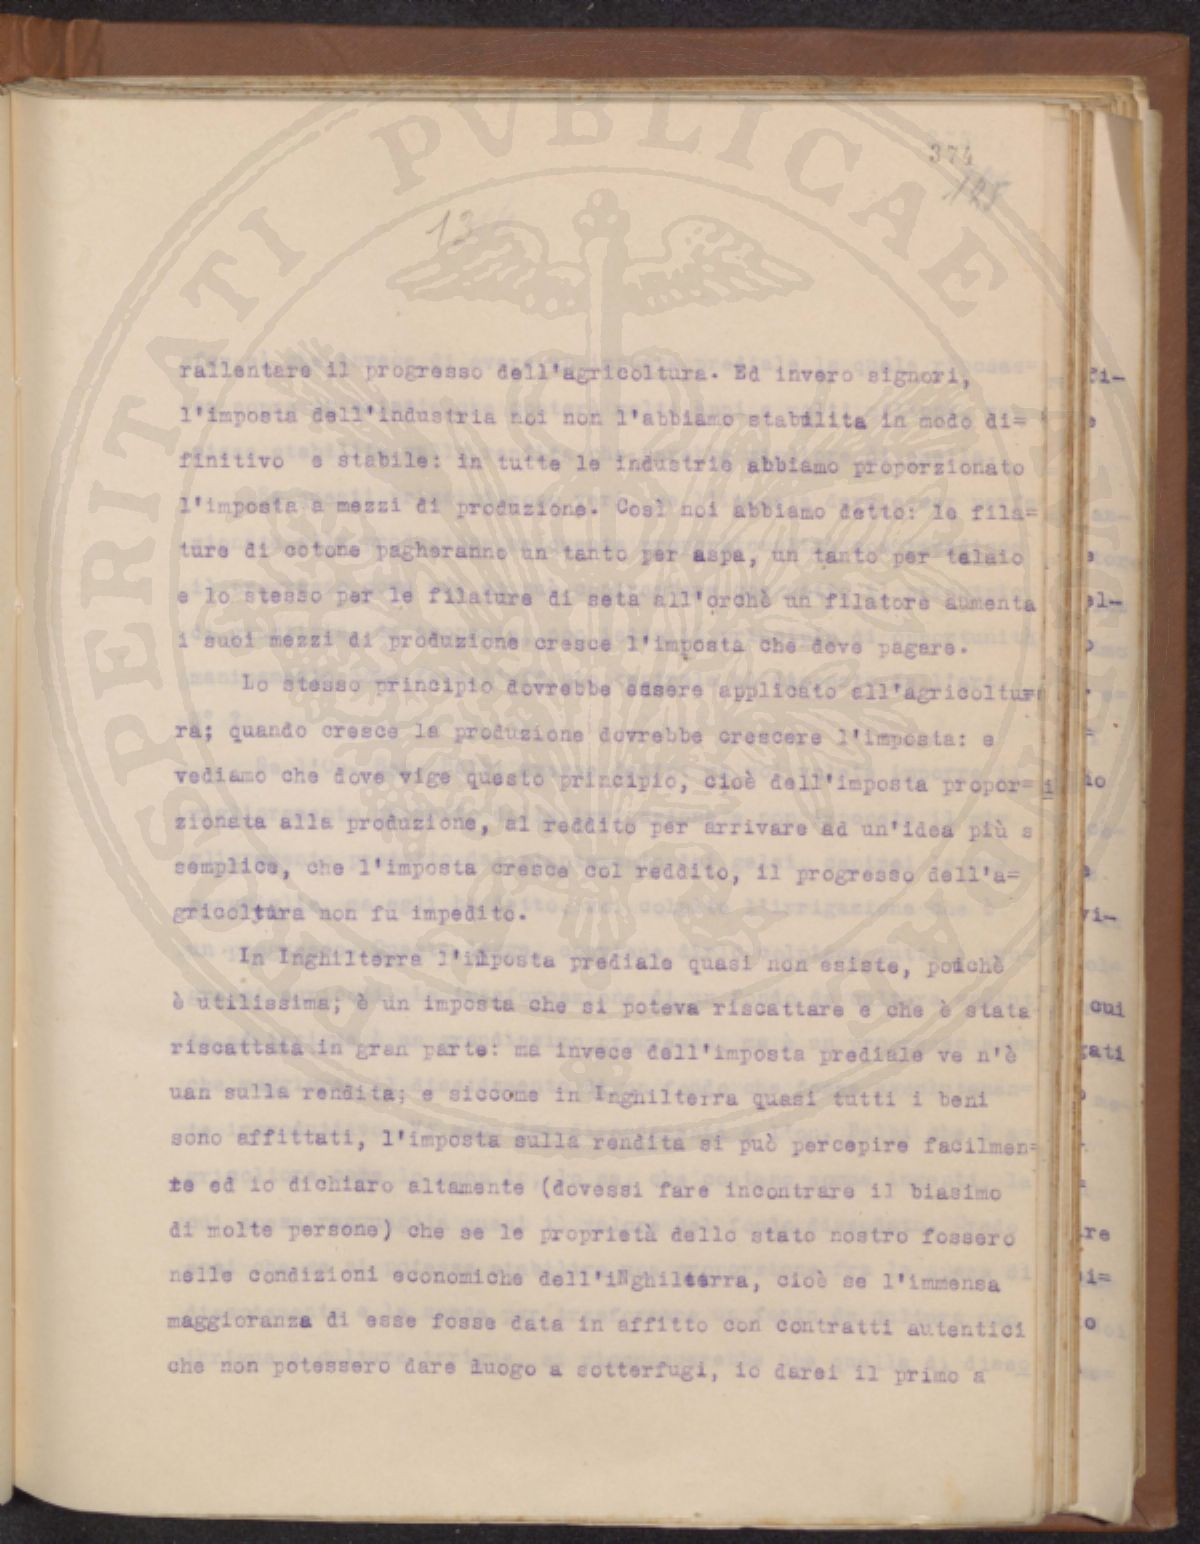 PROSPERITATI PVBLICAE
374
125
13
rallentare il progresso dell'agricoltura. Ed invero signori,
l'imposta dell'industria noi non l'abbiamo stabilita in modo di=
finitivo e stabile: in tutte le industrie abbiamo proporzionato
l'imposta a mezzi di produzione. Così noi abbiamo detto: le fila=
ture di cotone pagheranno un tanto per aspa, un tanto per telaio
e lo stesso per le filature di seta all'orchè un filatore aumenta
i suoi mezzi di produzione cresce l'imposta che deve pagare.
Lo stesso principio dovrebbe essere applicato all'agricoltu=
ra; quando cresce la produzione dovrebbe crescere l'imposta: e
vediamo che dove vige questo principio, cioè dell'imposta propor=
zionata alla produzione, al reddito per arrivare ad un'idea più s
semplice, che l'imposta cresce col reddito, il progresso dell'a=
gricoltura non fu impedito.
In Inghilterra l'imposta prediale quasi non esiste, poichè
è utilissima; è un imposta che si poteva riscattare e che è stata
riscattata in gran parte: ma invece dell'imposta prediale ve n'è
uan sulla rendita; e siccome in Inghilterra quasi tutti i beni
sono affittati, l'imposta sulla rendita si può percepire facilmen=
te ed io dichiaro altamente (dovessi fare incontrare il biasimo
di molte persone) che se le proprietà dello stato nostro fossero
nelle condizioni economiche dell'iNghilterra, cioè se l'immensa
maggioranza di esse fosse data in affitto con contratti autentici
che non potessero dare luogo a sotterfugi, io darei il primo a